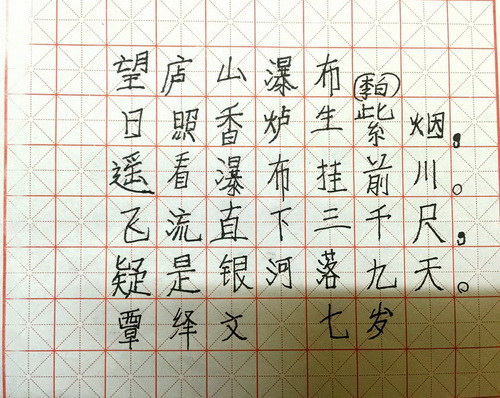 望庐山瀑布 李白
日照香炉生紫烟,
遥看瀑布挂前川。
飞流直下三千尺,
疑是银河落九天。
覃绎文 七岁